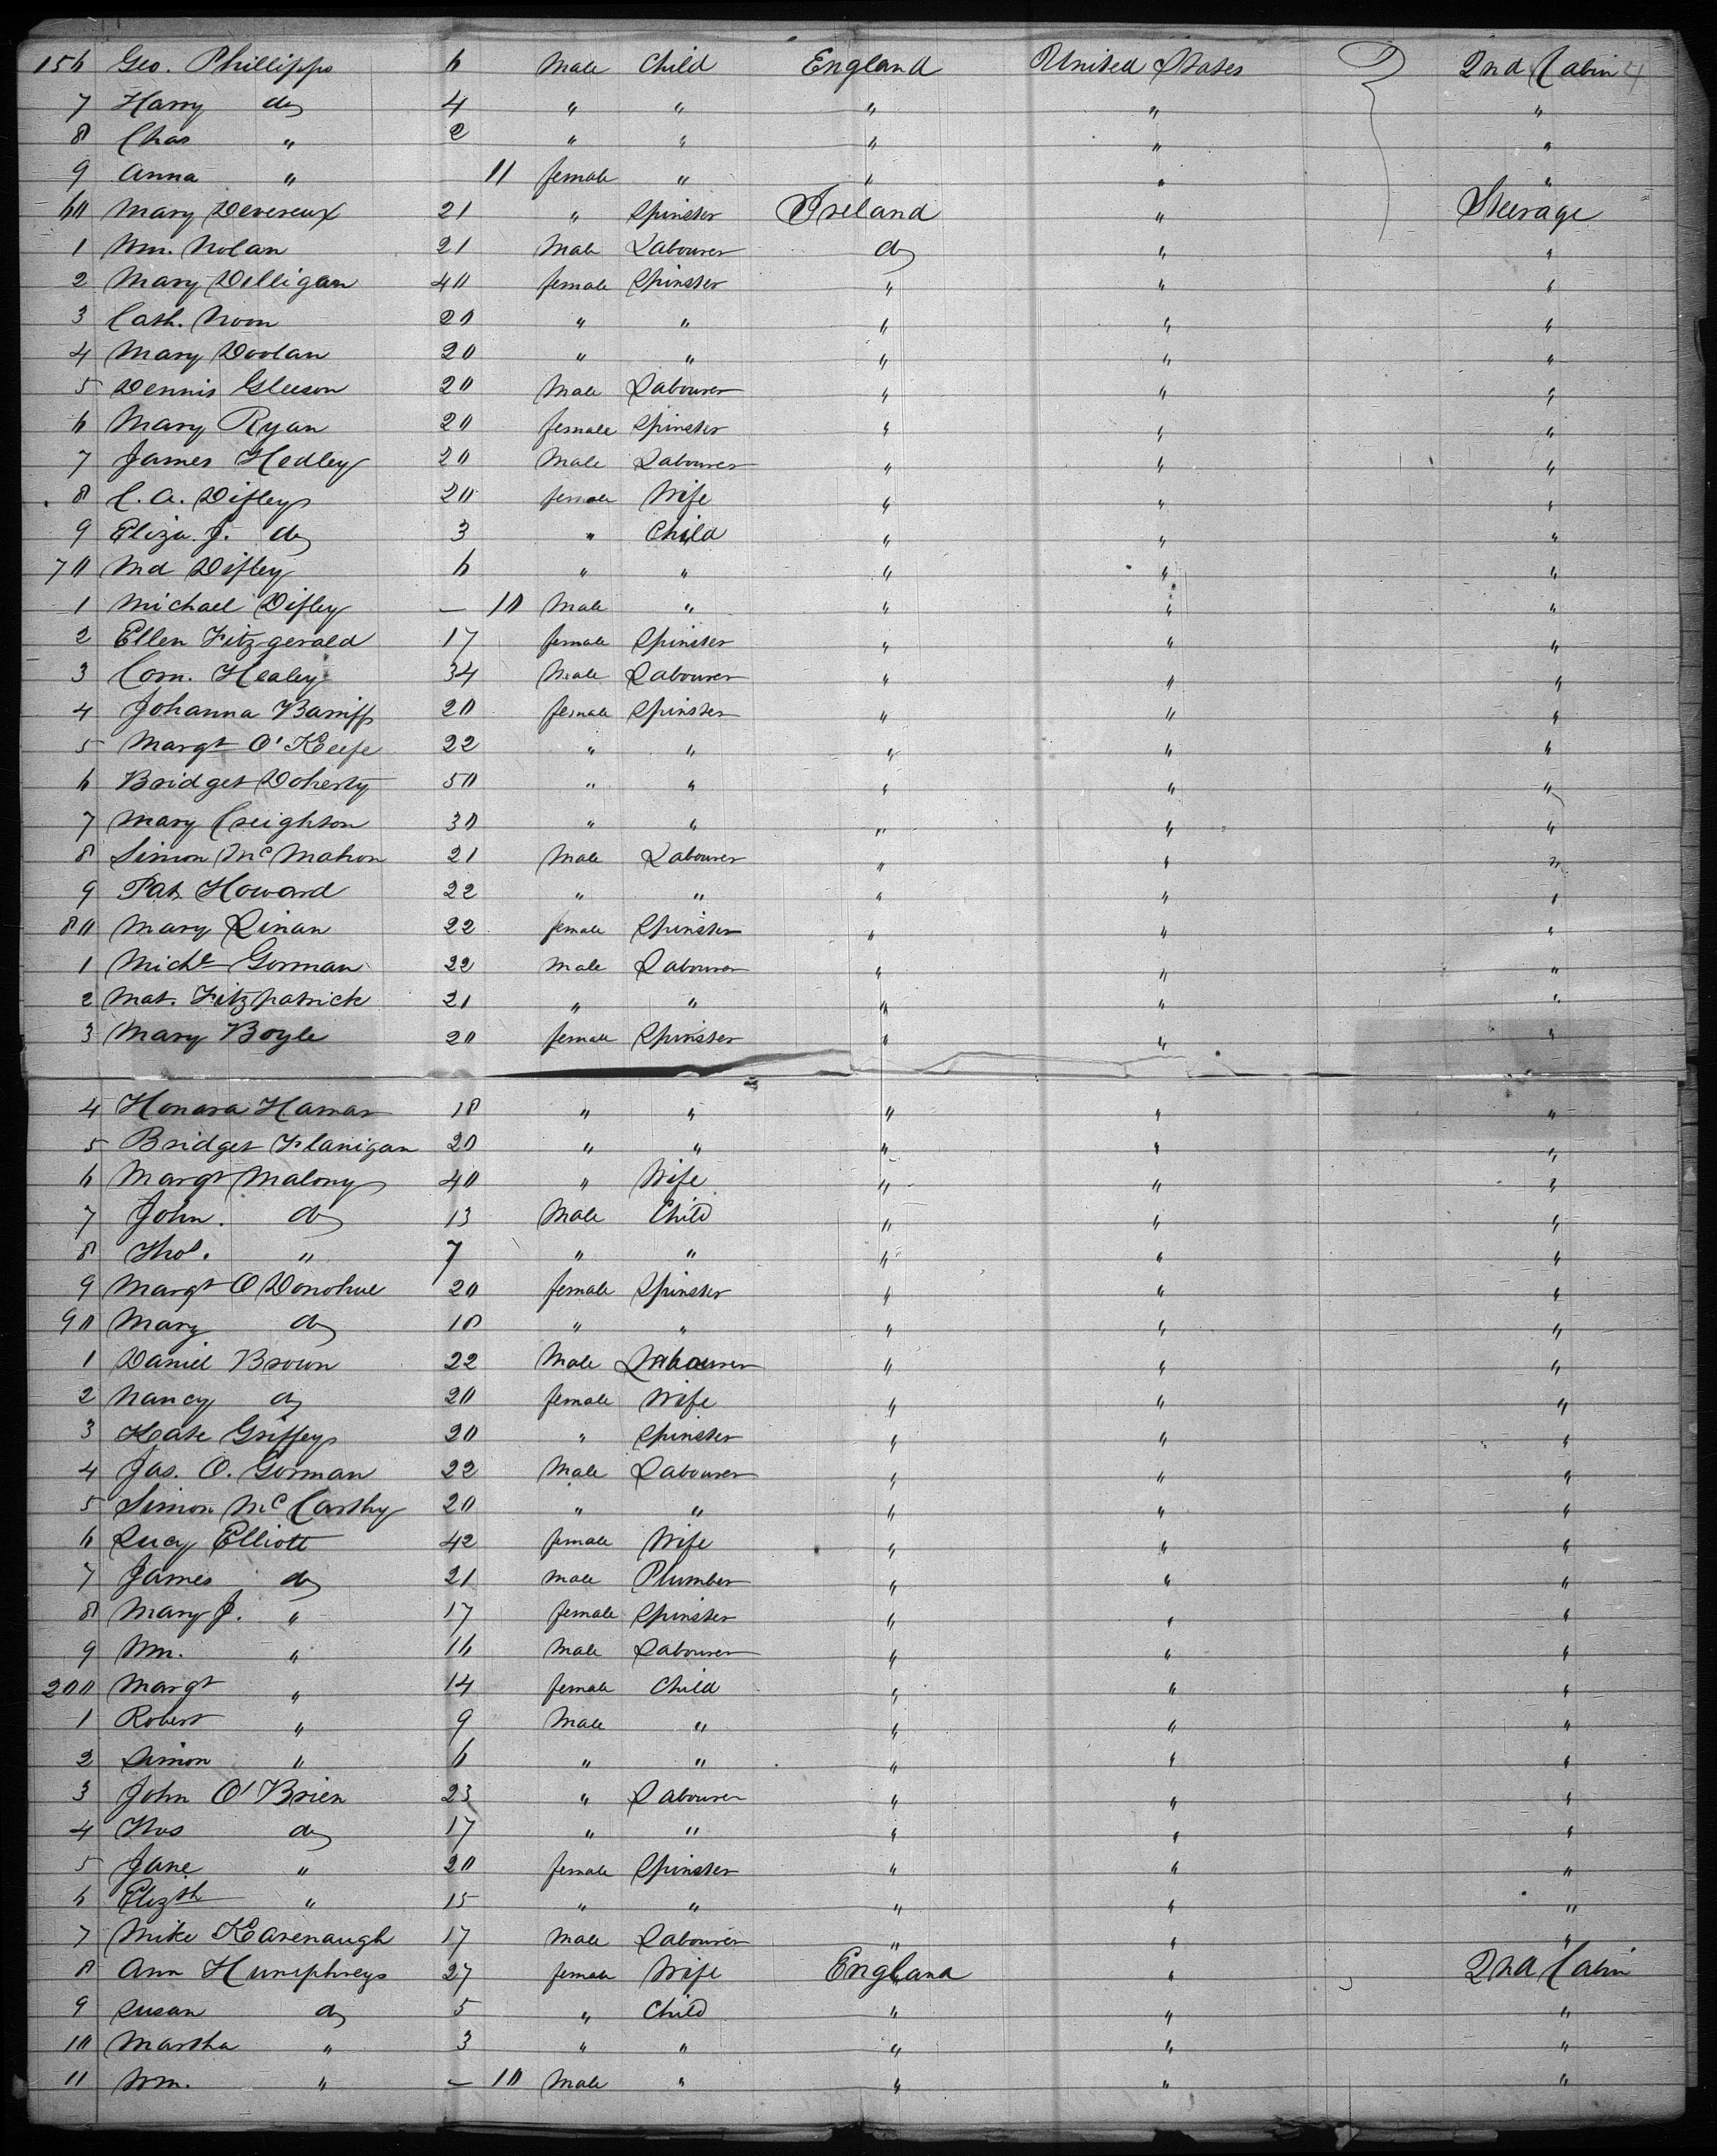 156 Geo. Phillipps 6 Male Child England United States 2nd Cabin 4
7 Harry do 4 " " " " "
8 Chas " 2 " " " " "
9 Anna " 11 female " " " "
60 Mary Devereux 21 " Spinster Ireland " Steerage
1 Wm. Nolan 21 Male Labourer do " "
2 Mary Dilligan 40 female Spinster " " "
3 Cath. Noon 20 " " " " "
4 Mary Doolan 20 " " " " "
5 Dennis Gleeson 20 Male Labourer " " "
6 Mary Ryan 20 female Spinster " " "
7 James Hedley 20 Male Labourer " " "
8 C. A. Difley 20 female Wife " " "
9 Eliza J. do 3 " Child " " "
70 Md Difley 6 " " " " "
1 Michael Difley – 10 Male " " " "
2 Ellen Fitzgerald 17 female Spinster " " "
3 Corn. Healey 34 Male Labourer " " "
4 Johanna 20 female Spinster " " "
5 Margt O'Keefe 22 " " " " "
6 Bridget Doherty 50 " " " " "
7 Mary Creighton 30 " " " " "
8 Simon McMahon 21 Male Labourer " " "
9 Pat. Howard 22 " " " " "
80 Mary Linan 22 female Spinster " " "
1 Michl Gorman 22 Male Labourer " " "
2 Mat. Fitzpatrick 21 " " " " "
3 Mary Boyle 20 female Spinster " " "
4 Honara Harran 18 " " " " "
5 Bridget Flanigan 20 " " " " "
6 Margt Malony 40 " Wife " " "
7 John. do 13 Male Child " " "
8 Thos. " 7 " " " " "
9 Margt O Donohue 20 female Spinster " " "
90 Mary do 18 " " " " "
1 Daniel Brown 22 Male Labourer " " "
2 Nancy do 20 female Wife " " "
3 Kate Griffey 20 " Spinster " " "
4 Jas. O. Gorman 22 Male Labourer " " "
5 Simon McCarthy 20 " " " " "
6 Lucy Elliott 42 female Wife " " "
7 James do 21 male Plumber " " "
8 Mary J. " 17 female Spinster " " "
9 Wm. " 16 Male Labourer " " "
200 Margt " 14 female Child " " "
1 Robert " 9 Male " " " "
2 Simon " 6 " " " " "
3 John O'Brien 23 " Labourer " " "
4 Thos do 17 " " " " "
5 Jane " 20 female Spinster " " "
6 Elizth " 15 " " " " "
7 Mike Kavenaugh 17 Male Labourer " " "
8 Ann Humphreys 27 female Wife England " 2nd Cabin
9 Susan do 5 " Child " " "
10 Martha " 3 " " " " "
11 Wm. " – 10 Male " " " "